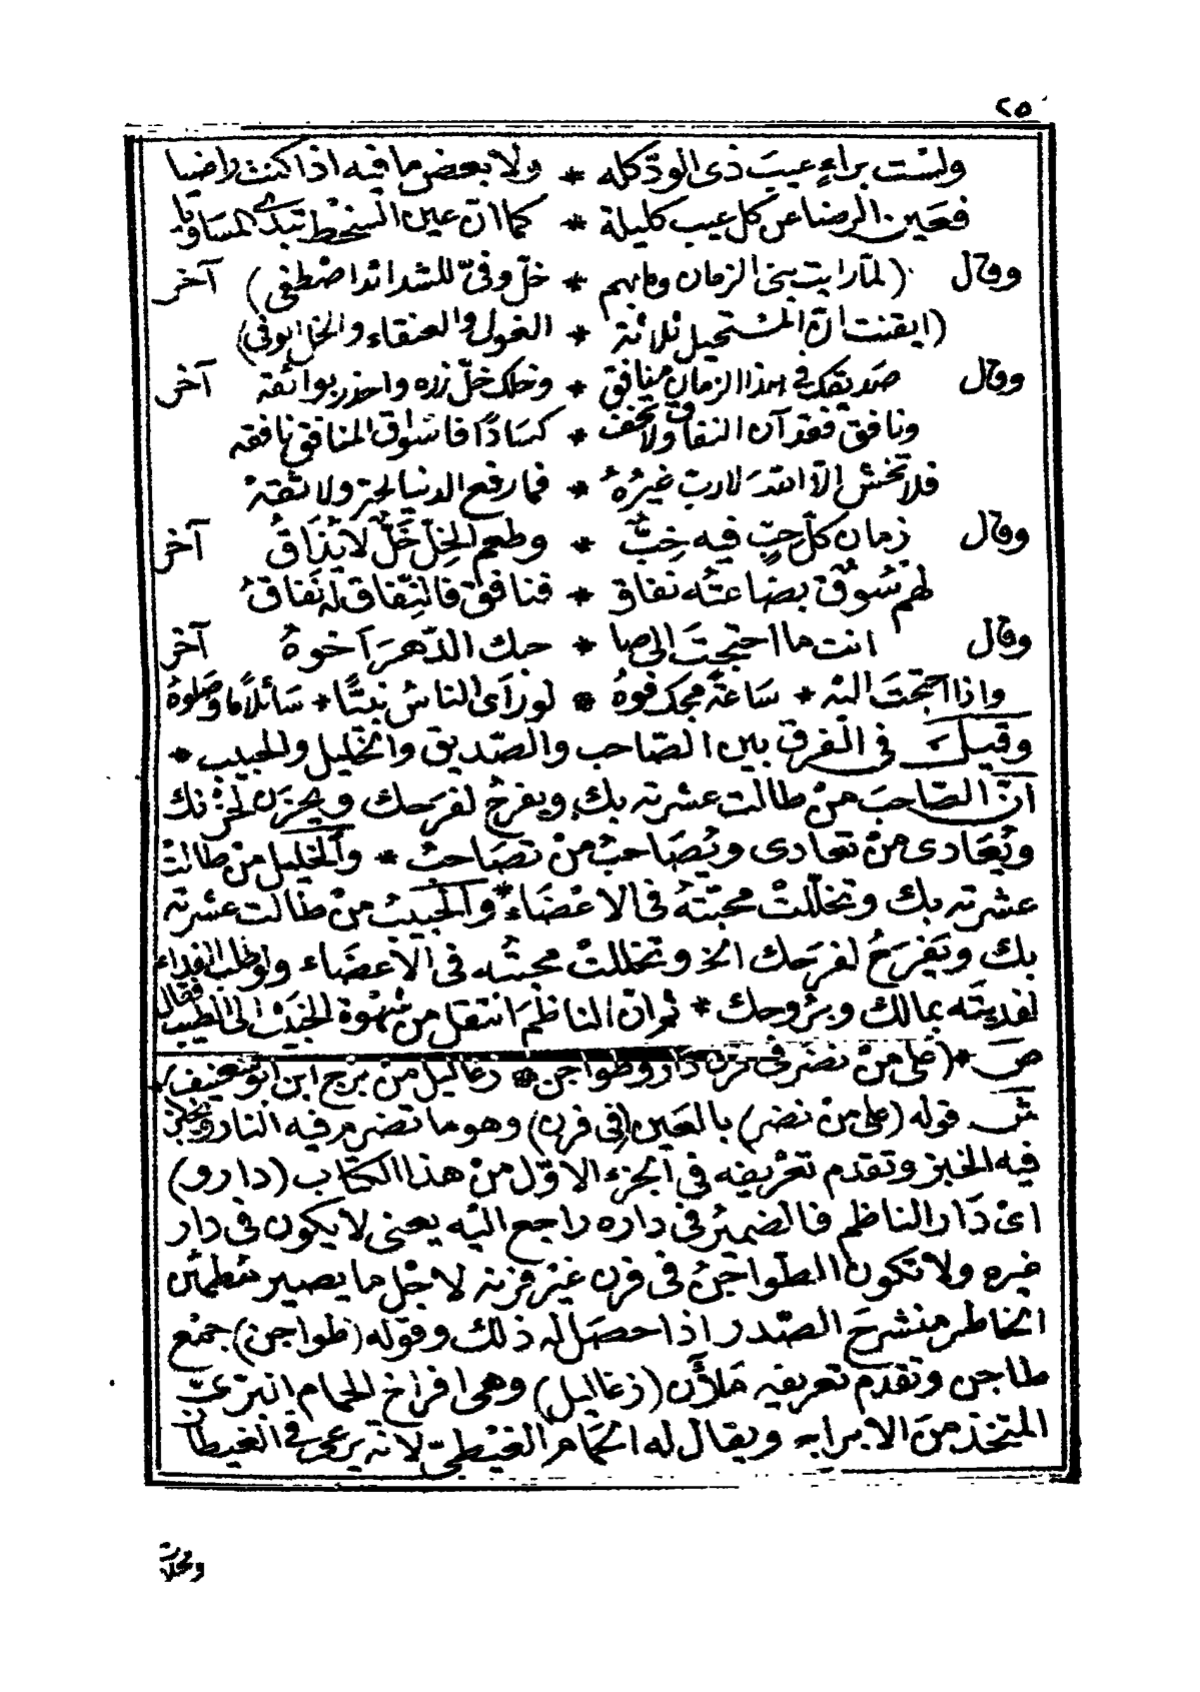 ٢٥
ولست براءٍ عيبَ ذى الودّ كله * ولا بعض ما فيه اذا كنت راضيا
فعَين الرضا عن كل عيب كليلة * كما انّ عين السخط تبدى المساويا
وقال (لمّا رايت بنى الزمان وما بهم * خلّ وفىّ للشدائد اصْطفى) آخر
(ايقنت انّ المستحيل ثلاثة * الغول والعنقاء والخل الوفى)
وقال صديقك فى هذا الزمان منافق * وخلك خلّ زره واحذر بوائقه آخر
ونافق فقد آن النفاق ولا تخف * كسَادًا فاسْواق المنافق نافقه
فلا تخش الّا الله لا ربّ غيرُهُ * فما رفع الدنيا لحرّ ولا ثقهْ
وقال زمان كلّ حِبٍّ فيه خِبٌّ * وطعم الخِلّ خَلٌّ لا يُذَاقُ آخر
لهم سُوقٌ بضاعتُه نفاق * فنافقْ فالنِّفاق له نَفاقُ
وقال انت ما احتجتَ الى صا * حبك الدّهرَ آخوهُ آخر
واذا احتجتَ اليْه * سَاعةً مجك فوهُ * لو رَاى الناسُ نبيًّا * سَائلًا ما وصَلوهُ
وقيل فى الفرق بين الصّاحب والصّديق والخليل والحبيب *
انّ الصّاحبَ منْ طالت عشرته بك ويفرحُ لفرَحك ويحزن لحزْنك
ويُعَادى منْ تعادى ويُصَاحبُ منْ تصَاحبُ * والخليل منْ طالتْ
عشرته بك وتخلّلتْ محبّتهُ فى الاعْضَاء * والحَبيبُ منْ طالت عشرته
بك ويَفرَحُ لفرَحك الخ وتخللتْ محبتُه فى الاعضَاء ولو طلب الفداء
لفديتَه بمالك وبرُوحك * ثم انّ الناظمَ انتقل من شهْوة الخبَيْز الى الطيب فقال
صَ * (على منْ نضر فى فرن دارو طواجن * زغاليل من برج ابن ابو شعنيف)
شَ قوله (على منْ نضر) بالعَين (فى فرن) وهو ما تضرم فيه النار ويخبز
فيه الخبز وتقدم تعْريفه فى الجزء الاوّل منْ هذا الكتاب (دارو)
اىْ دَار الناظم فالضميْر فى داره راجع اليْه يعنى لا يكون فى دار
غيره ولا تكون الطّواجنُ فى فرن غيْر فرنه لاجْل ما يصير مُطمئن
الخاطر منشرحَ الصّدر اذا حصَل له ذلك وقوله (طواجن) جمْع
طاجن وتقدم تعريفه مَلأن (زغاليل) وهى افراخ الحمام البرّىّ
المتخذ منَ الابراجه ويقال له الحمَام الغيْطىّ لانّه يرعى فى الغيطان